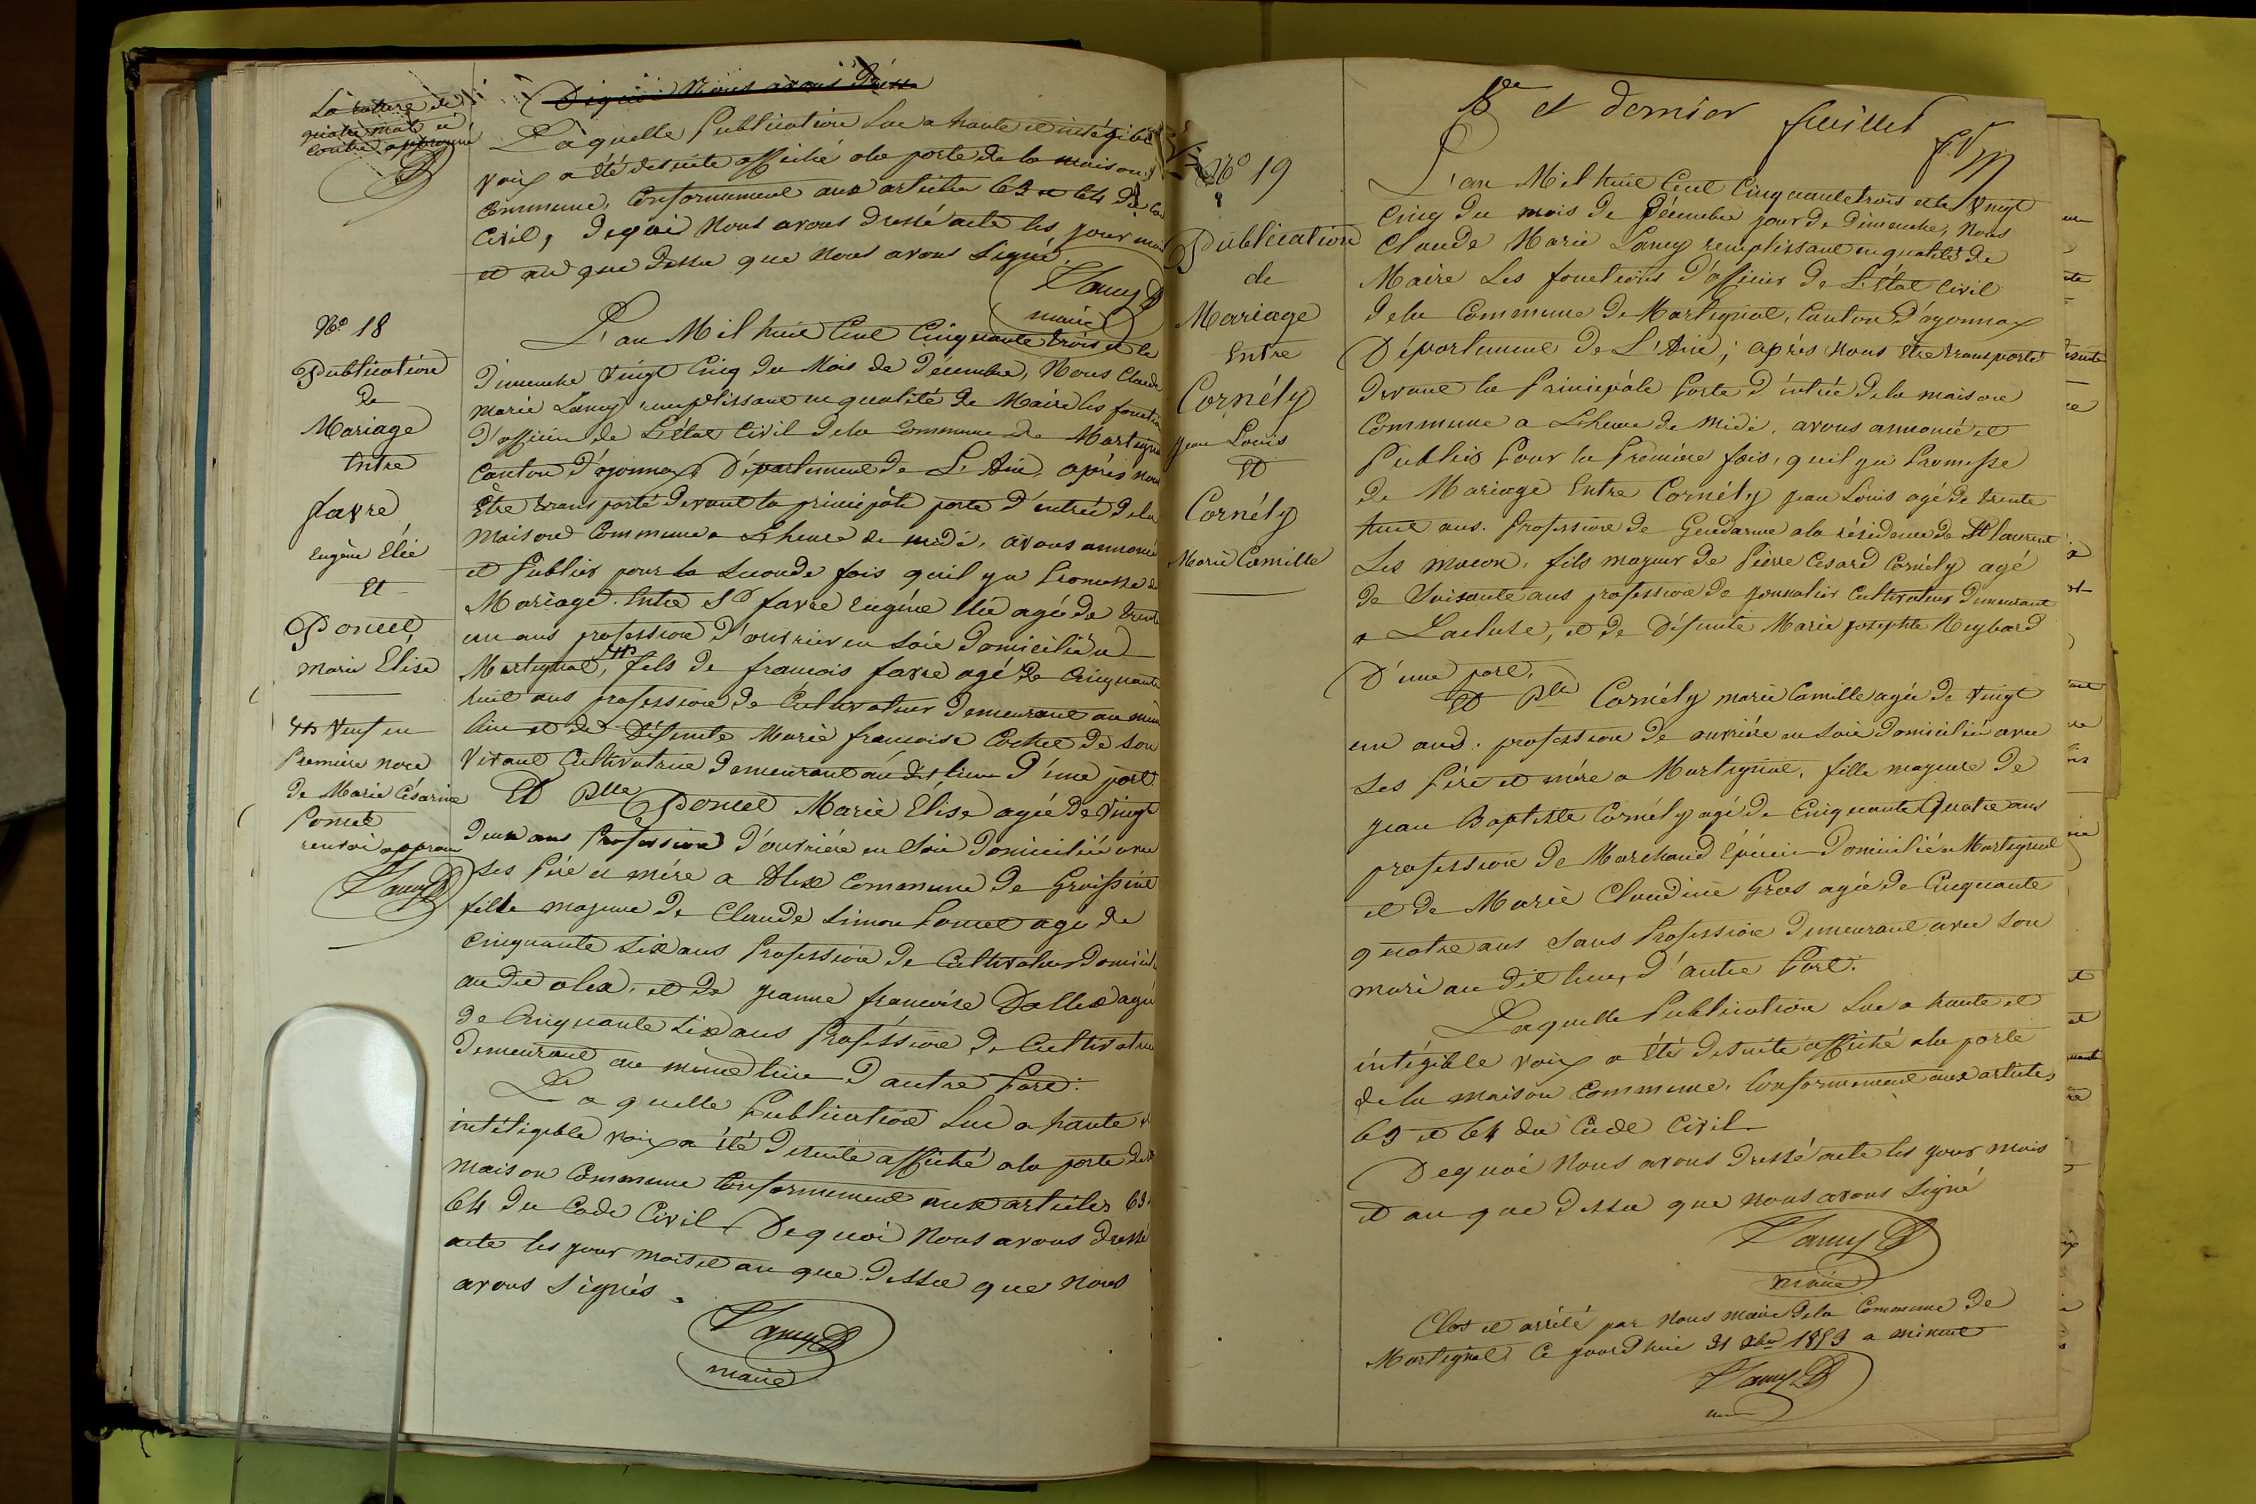 La rature de
quatre mots ci
contre approuvé
Dequoi Nous avons dressé
Laquelle Publication Lue a haute et intégible
voix a été desuite affiché ala porte de la maison
Commune, Conformement aux articles 63 et 64 du Code
Civil, dequoi Nous avons dressé acte les jour mois
et an que dessu que Nous avons Signé
Lamy
maire
No 18
Publication
de
Mariage
Entre
favre
Eugène Elie
Et
Poncet
Marie Elise
Veuf en
Première noce
de Marie Césarine
Poncet
renvoi approuvé
Lamy
L'an Mil huit Cent Cinquante trois et le
dimenche Vingt Cinq du Mois de Décembre, Nous Claude
Marie Lamy remplissant en qualité de Maire les fonctions
d'officier de L'état Civil dela Commune de Martignat
Canton d'oyonnax, Département de L'Ain, après nous
Être transporté devant la principâle porte d'entrée dela
maison Commune a Lheure de midi, avons annoncé
et Publier pour la Seconde fois quil ya Promesse de
Mariage Entre Sr favre Eugéne Elie agé de trente
un ans profession d'ouvrier en Soie domicilié a
Martignat, fils de francois favre agé de Cinquante
huit ans profession de Cultivateur demeurant au même
lieu et de Défunte Marie francoise Cochet de Son
Vivant Cultivatrice demeurant au dit lieu d'une part
Et Dlle Poncet Marie Élise agée de Vingt
deux ans Profession d'ouvriére en Soie domicilié avec
Ses Pére et mére a Alex Commune de Groissiat
fille majeure de Claude Simon Poncet agé de
Cinquante Six ans Profession de Cultivateur domicilié
audit alex, et de Jeanne francoise Dallex agée
de Cinquante Six ans Proféssion de Cultivatrice
demeurant au même lieu d'autre Part.
Laquelle Publication Lue a haute et
intéligible voix a été desuite affiché ala porte dela
maison Commune Conformement aux articles 63
64 du Code Civil Dequoi Nous avons dressé
acte les jour mois et an que dessu que Nous
avons Signés.
Lamy
maire
18e et dernier feuillet
No 19
Publication
de
Mariage
Entre
Cornély
Jean Louis
Et
Cornély
Marie Camille
L'an Mil huit Cent Cinquante trois et le Vingt
Cinq du mois de Décembre jour de Dimenche, Nous
Claude Marie Lamy remplissant en qualité de
Maire Les fonctions d'officier de L'état Civil
dela Commune de Martignat, Canton d'oyonnax
Département de L'Ain; après nous être transporté
devant la Principâle Porte d'entrée dela maison
Commune a Lheure de midi, avons annoncé et
Publier Pour la Première fois, quil ya Promesse
de Mariage Entre Cornély jean Louis agé de trente
huit ans. Profession de Gendarme ala résidence de St laurent
Les macon, fils majeur de Pierre César Cornély agé
de Soixante ans profession de journalier Cultivateur demeurant
a Lacluse, et de Défunte Marie josephte Reybard
D'une part.
Et Dlle Cornély marie Camille agée de Vingt
un ans. profession de ouvriére en Soie domicilié avec
Ses Pére et mére a Martignat, fille majeure de
Jean Baptiste Cornély agé de Cinquante Quatre ans
profession de Marchand Epicier domicilié a Martignat
et de Marie Claudine Gros agée de Cinquante
quatre ans Sans Profession demeurant avec Son
mari au dit lieu, d'autre Part.
Laquelle Publication Lue a haute et
intégible voix a été desuite affiché ala porte
dela maison Commune, Conformement aux articles
63 et 64 du Code Civil
Dequoi Nous avons dressé acte les jour mois
et an que dessu que nous avons Signé
Lamy
maire
Clos et arrêté par Nous Maire dela Commune de
Martignat Ce jourd'hui 31 Xbre 1853 a minuit
Lamy